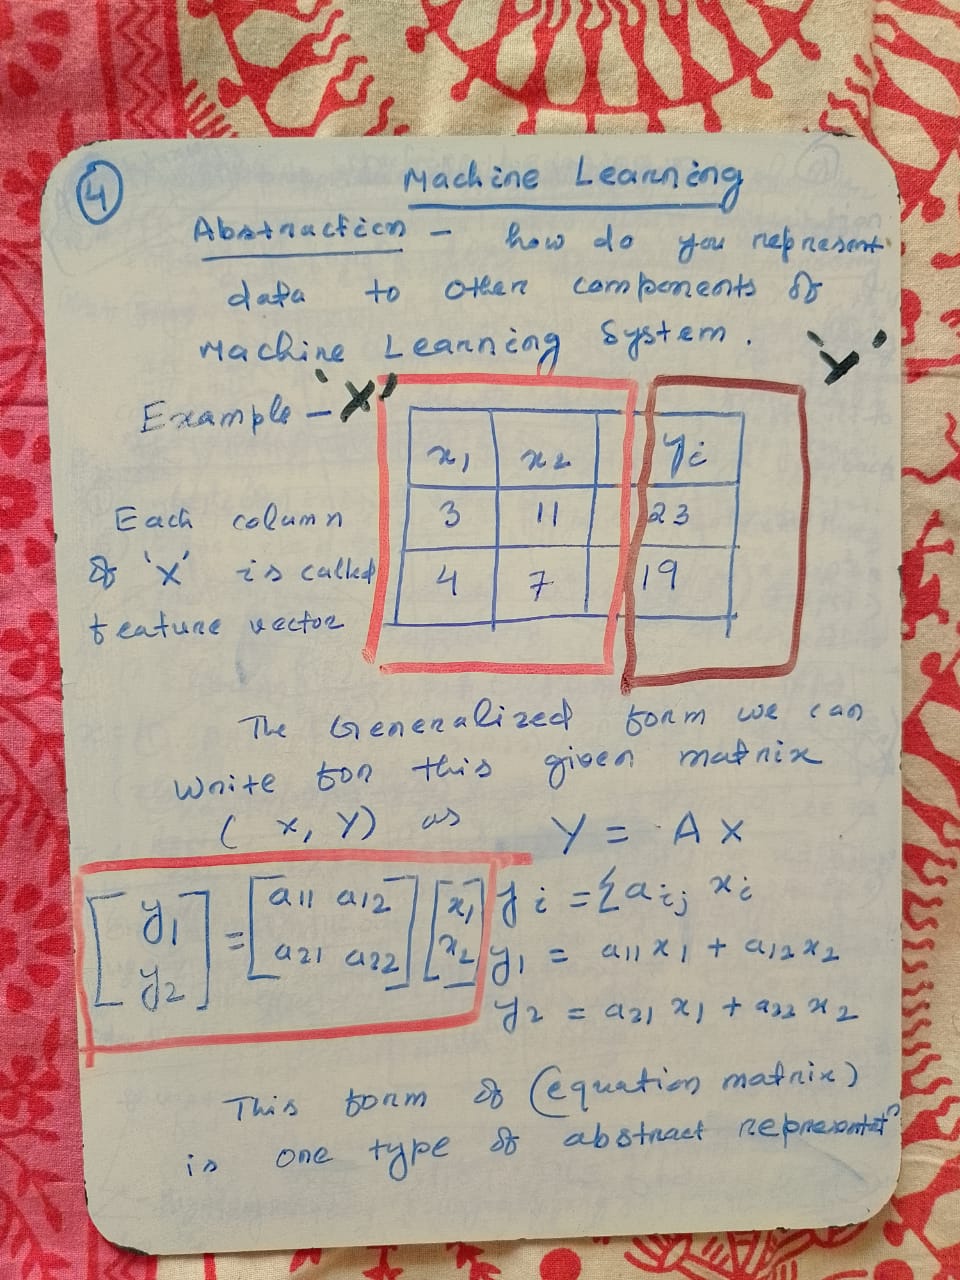 4
Machine Learning
Abstraction - how do you represent
data to other components of
Machine Learning System.
Example - 'X' 'Y'
x1 x2 yi
3 11 23
4 7 19
Each column
of 'X' is called
feature vector
The Generalized form we can
write for this given matrix
(X, Y) as Y = AX
[y1 y2] = [a11 a12 a21 a22] [x1 x2]
yi = Σ aij xi
y1 = a11 x1 + a12 x2
y2 = a21 x1 + a22 x2
This form of (equation matrix)
is one type of abstract